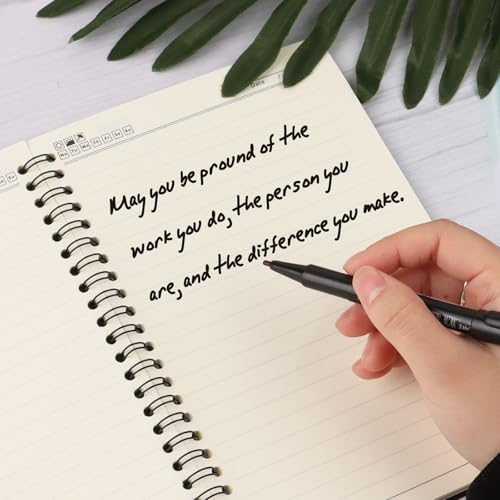 Date
Mo Tu We Th Fr Sa Su
May you be pround of the
work you do, the person you
are, and the difference you make.